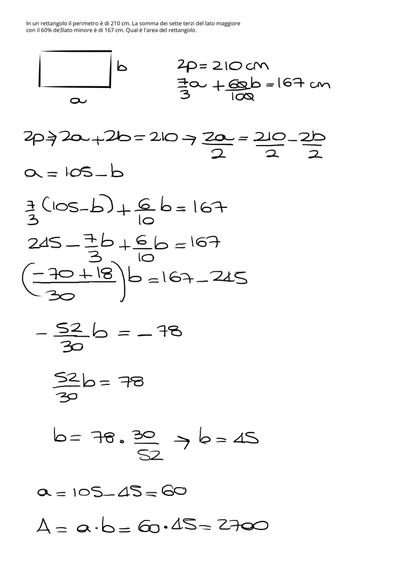 In un rettangolo il perimetro è di 210 cm. La somma dei sette terzi del lato maggiore
con il 60% de3lato minore è di 167 cm. Qual è l'area del rettangolo.
b
a
2p = 210 cm
7/3 a + 60/100 b = 167 cm
2p → 2a + 2b = 210 → 2a/2 = 210/2 - 2b/2
a = 105 - b
7/3 (105 - b) + 6/10 b = 167
245 - 7b/3 + 6/10 b = 167
((-70 + 18)/30) b = 167 - 245
- 52/30 b = - 78
52/30 b = 78
b = 78 · 30/52 → b = 45
a = 105 - 45 = 60
A = a · b = 60 · 45 = 2700